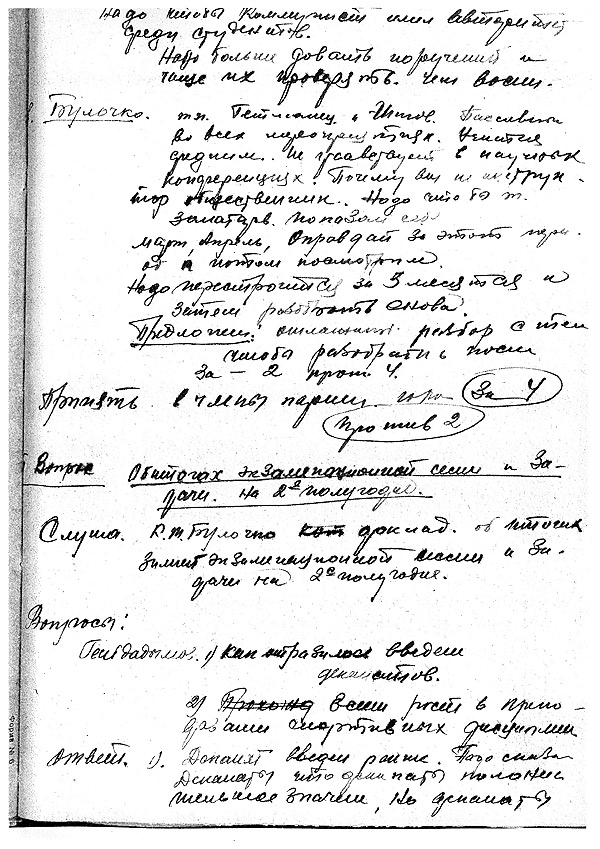 Надо чтобы коммунист имел авторитет
среди студентов.
Надо больше давать поручений и
чаще их проверять. чем восп.
Булочко. т.т. и Пассивен
во всех мероприятиях. Учится
средним. Не участвует в научных
конференциях. Почему Вы не
общественник. Надо чтобы т.
показал себя
март, апрель, оправдай за этот пери-
од и потом посмотрим.
Надо перестроиться за 3 месяца и
затем разобрать снова.
Предложен: разбор с тем
чтобы разобрать после
За – 2 прот 4.
Принять в члены партии За 4
Против 2
Вопрос Об итогах экзаменационной сессии и за-
дачи на 2е полугодие.
Слуша. т. Булочко доклад. об итогах
зимней экзаменационной сессии и за-
дачи на 2е полугодие.
Вопросы:
1) Как отразилось введен
деканатов.
2) рост в препо-
давании спортивных дисциплин
Ответ. 1). Деканат введен Надо сказать
Деканаты что деканаты положи-
тельное значен, но деканаты